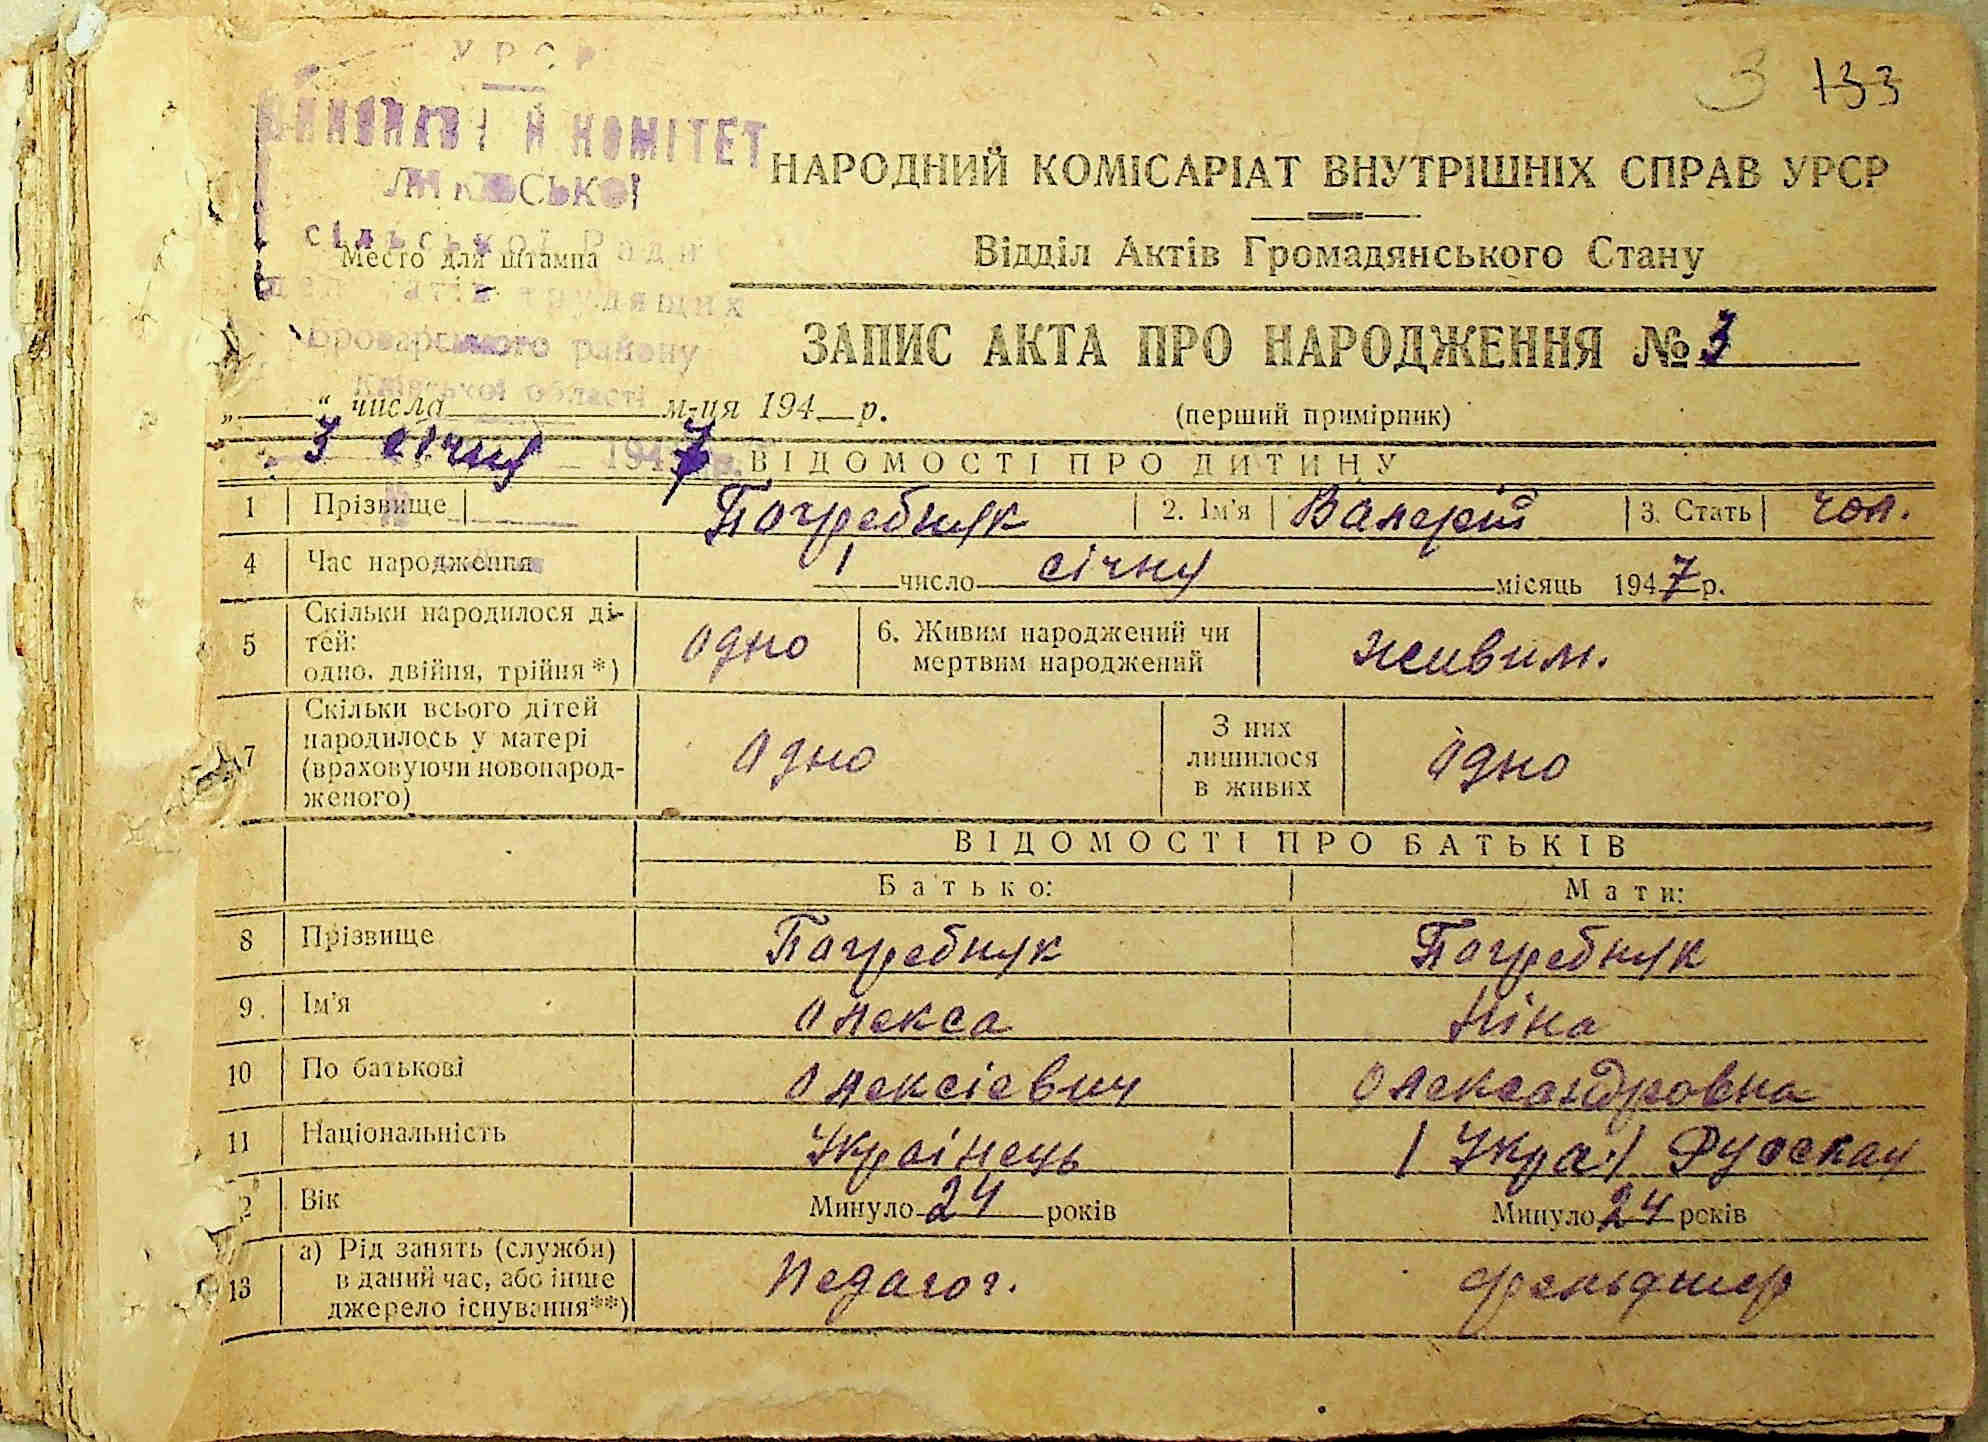 УРСР
3 133
ВИКОНАВЧИЙ КОМІТЕТ
НАРОДНИЙ КОМІСАРІАТ ВНУТРІШНІХ СПРАВ УРСР
сільської Ради
Место для штампа
Відділ Актів Громадянського Стану
депутатів трудящих
Броварського району
Київської області
ЗАПИС АКТА ПРО НАРОДЖЕННЯ № 3
„ “ числа м-ця 194 р.
(перший примірник)
3 січня 1947 р.
ВІДОМОСТІ ПРО ДИТИНУ
1 Прізвище Погребняк 2. Ім'я Валерій 3. Стать чол.
4 Час народження 1 число січня місяць 1947 р.
5 Скільки народилося ді-
тей:
одно, двійня, трійня *)
одно
6. Живим народжений чи
мертвим народжений
живим.
7 Скільки всього дітей
народилось у матері
(враховуючи новонарод-
женого)
одно
З них
лишилося
в живих
одно
ВІДОМОСТІ ПРО БАТЬКІВ
Батько: Мати:
8 Прізвище Погребняк Погребняк
9. Ім'я Олекса Ніна
10 По батькові Олексієвич Олександровна
11 Національність Українець (Укра.) Русская
2 Вік Минуло 24 років Минуло 24 років
13 а) Рід занять (служби)
в даний час, або інше
джерело існування**)
Педагог. фельдшер